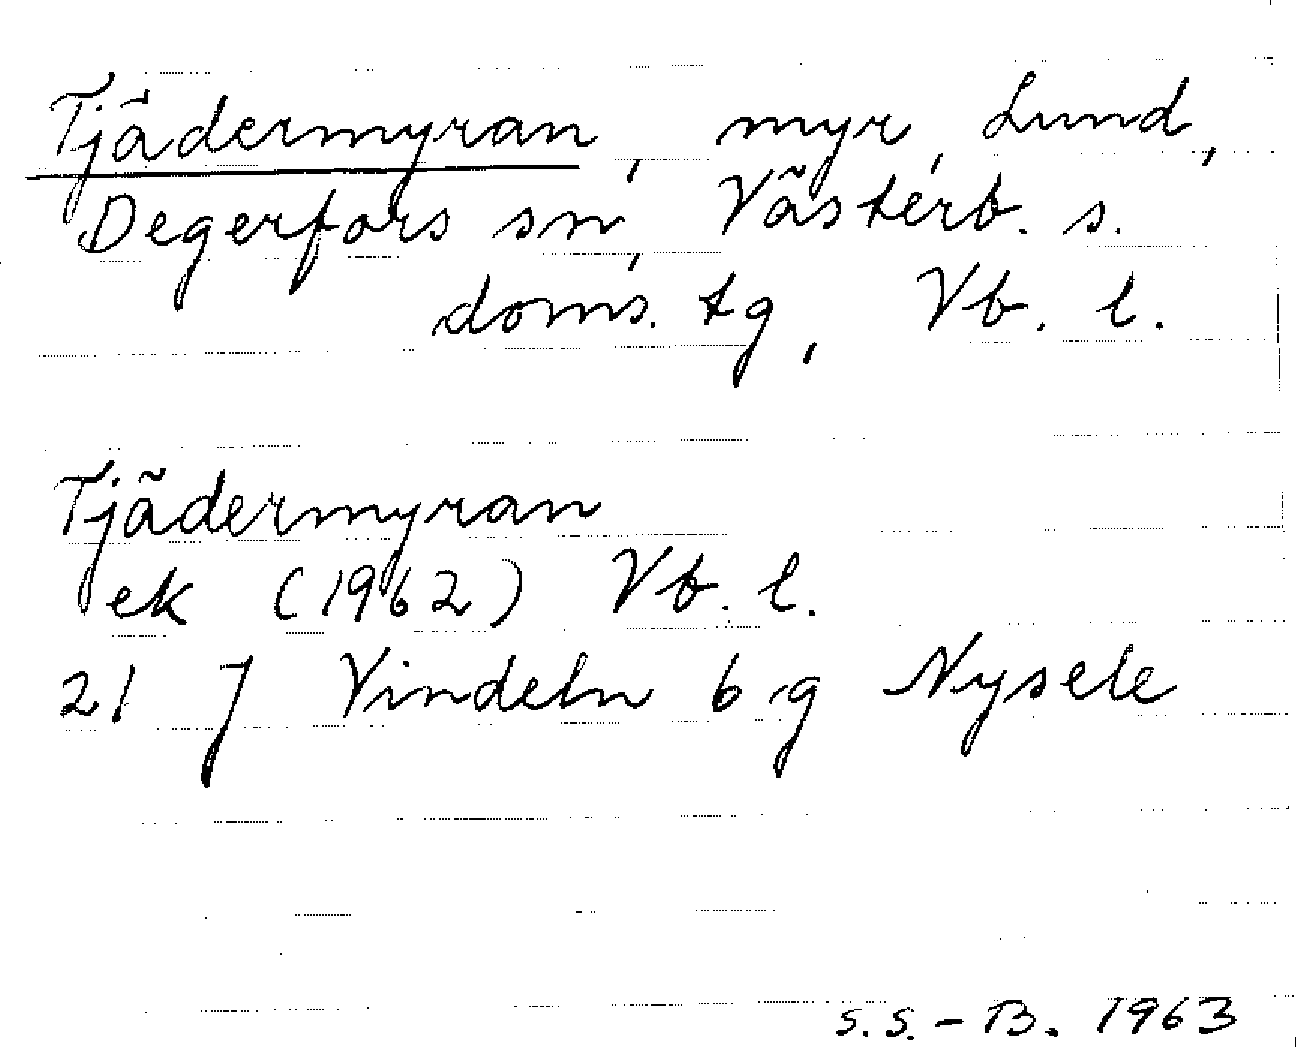 Tjädermyran, myr, Lund,
Degerfors sn, Västerb. s.
doms. tg, Vb. l.
Tjädermyran
ek (1962) Vb. l.
21 J Vindeln 6 g Nysele
S.S.-B. 1963